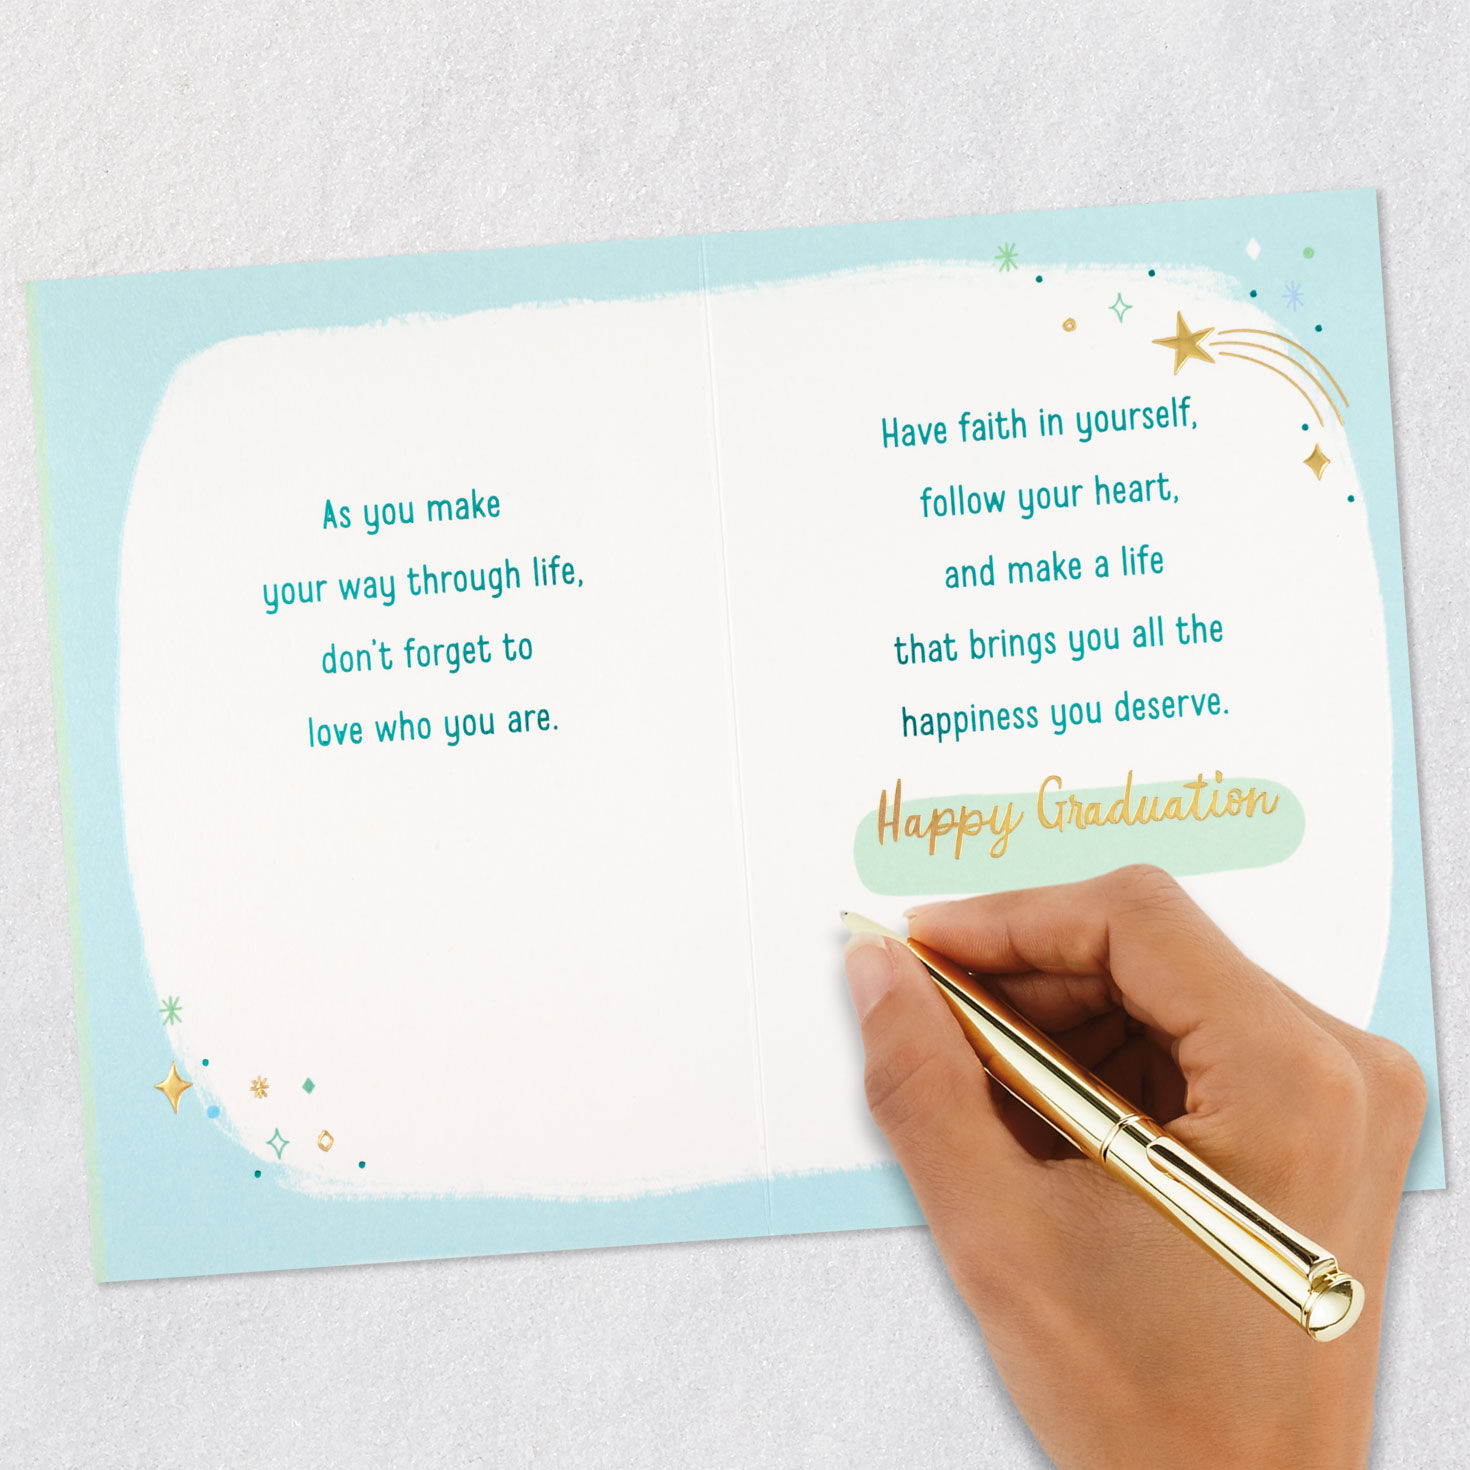 As you make
your way through life,
don't forget to
love who you are.
Have faith in yourself,
follow your heart,
and make a life
that brings you all the
happiness you deserve.
Happy Graduation